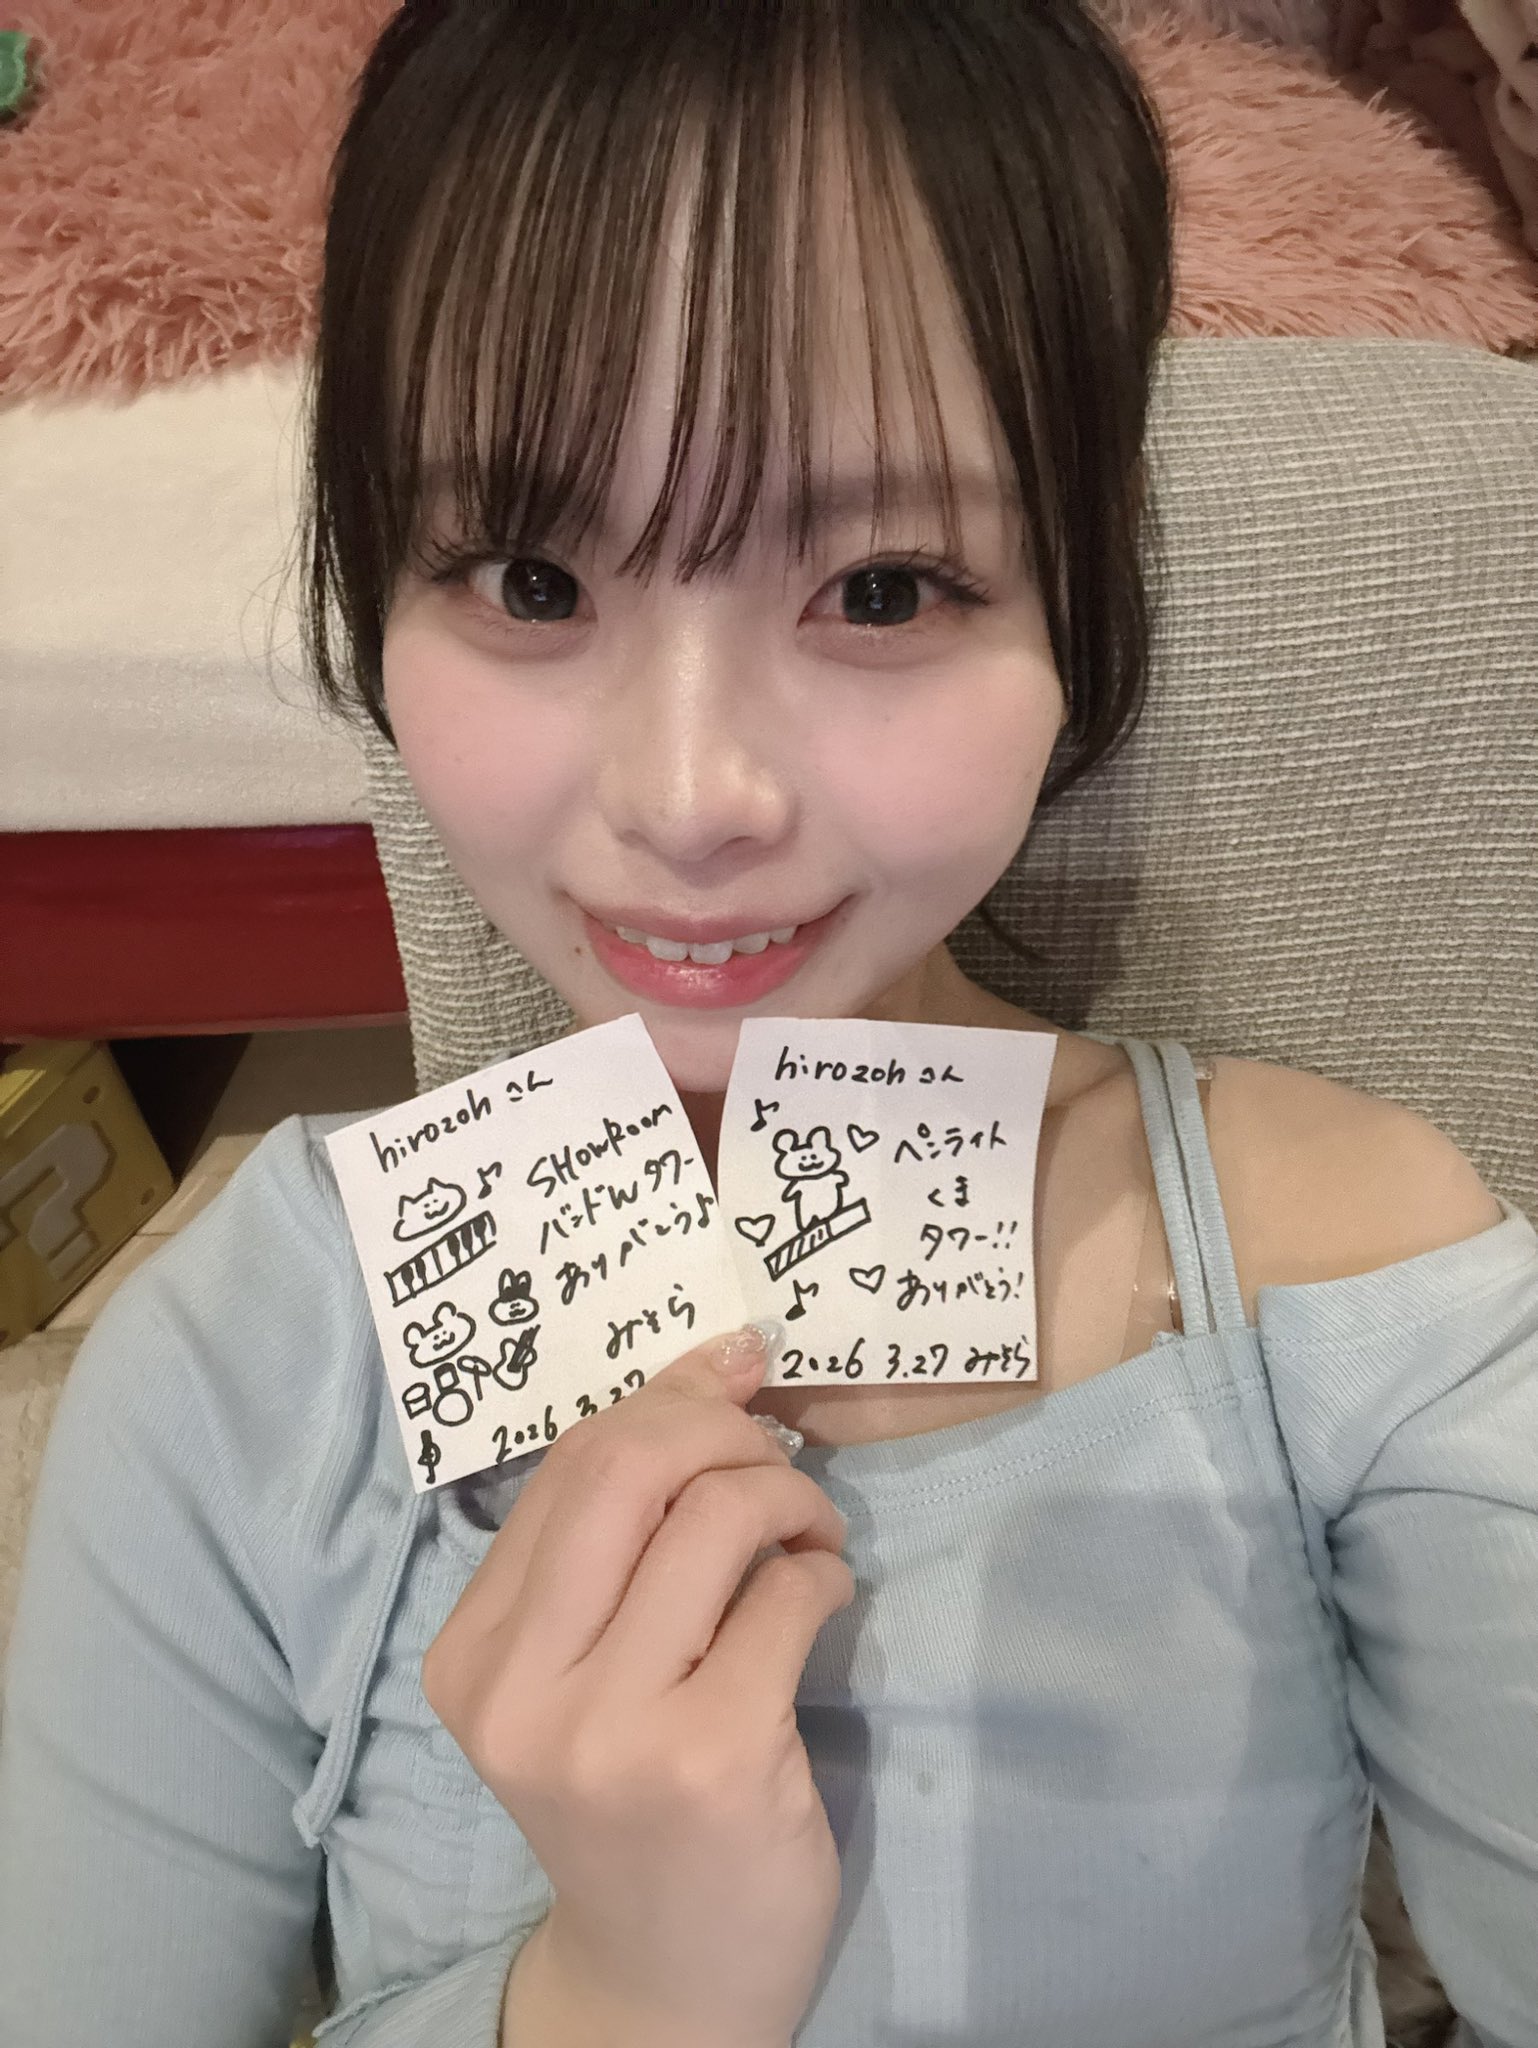 hirozohさん
SHOWROOM
バンドWタワー
ありがとう♪
みそら
2026 3.27
hirozohさん
ペンライト
くま
タワー!!
ありがとう!
2026 3.27 みそら